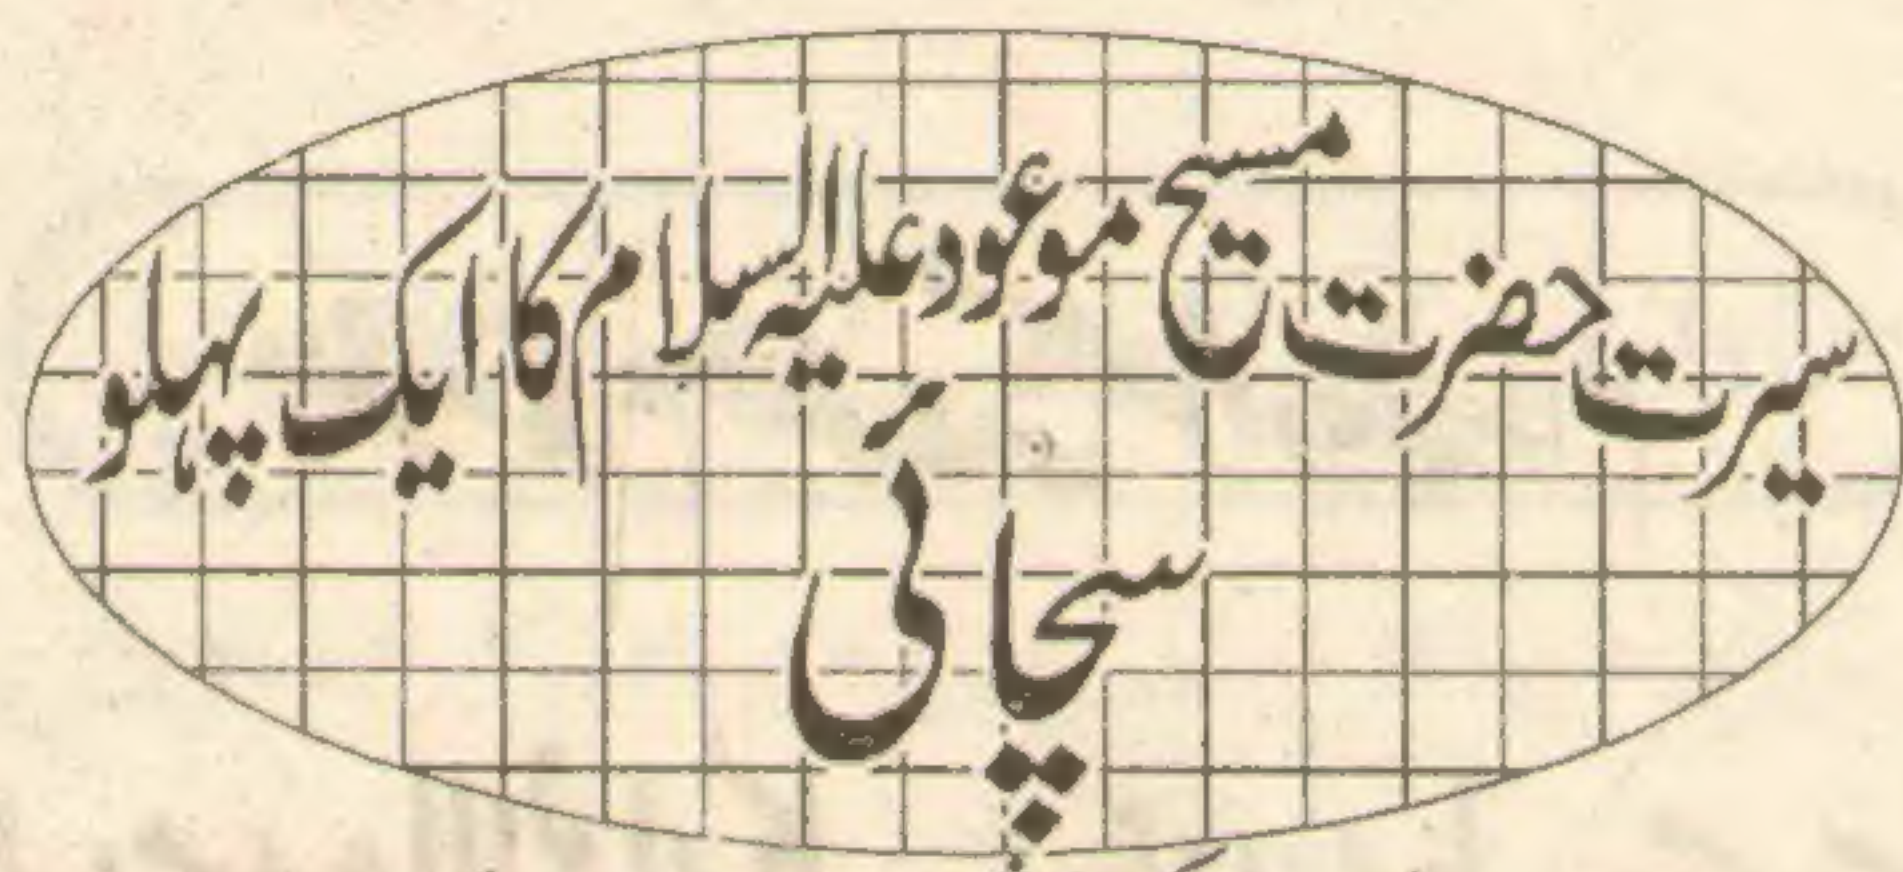 سیرت حضرت مسیح موعود علیہ السلام کا ایک پہلو
سچائی